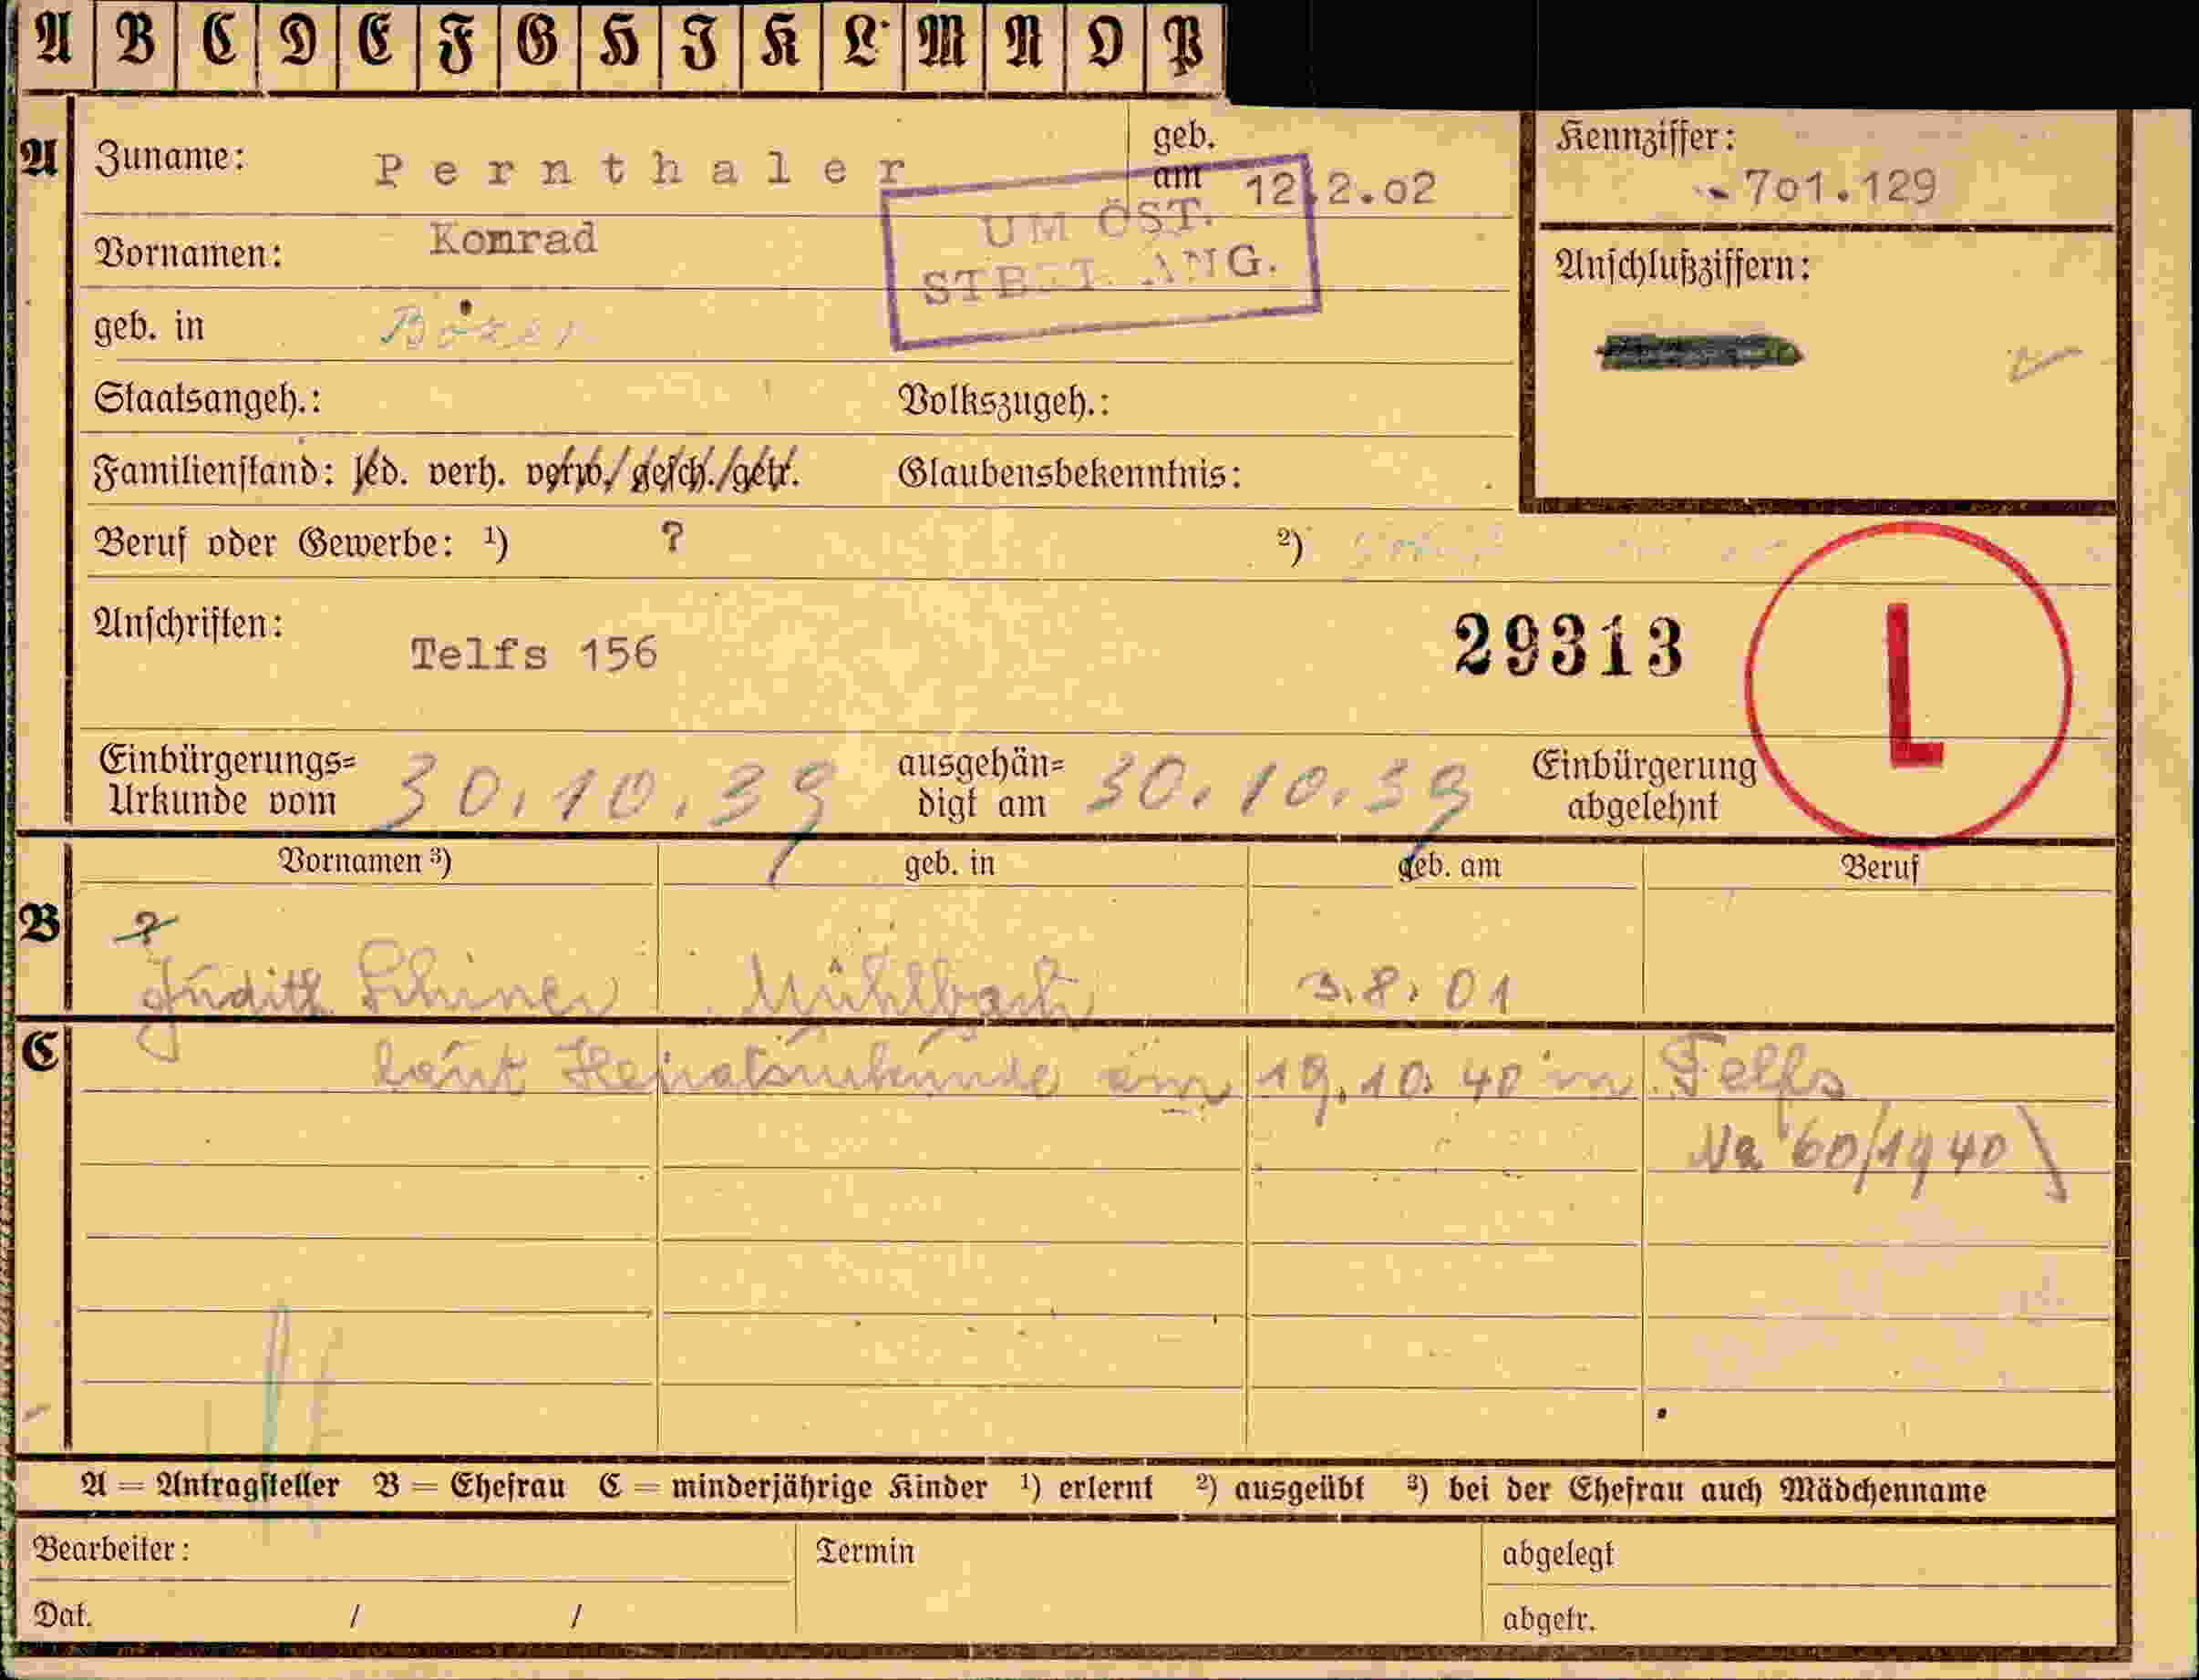 A B C D E F G H J K L M N O P
A Zuname: Pernthaler geb. am 12.2.02 Kennziffer: 701.129
UM ÖST.
Vornamen: Konrad Anschlußziffern:
geb. in Bozen
Staatsangeh.: Volkszugeh.:
Familienstand: led. verh. verw./gesch./getr. Glaubensbekenntnis:
Beruf oder Gewerbe: ¹) ? ²)
Anschriften: Telfs 156 29313 L
Einbürgerungs= Urkunde vom 30.10.39 ausgehän= digt am 30.10.39 Einbürgerung abgelehnt
Vornamen ³) geb. in geb. am Beruf
B ?
Judith Mühlbach 3.8.01
C laut Heiratsurkunde am 19.10.40 in Telfs
60/1940
A = Antragsteller B = Ehefrau C = minderjährige Kinder ¹) erlernt ²) ausgeübt ³) bei der Ehefrau auch Mädchenname
Bearbeiter: Termin abgelegt
Dat. / / abgetr.